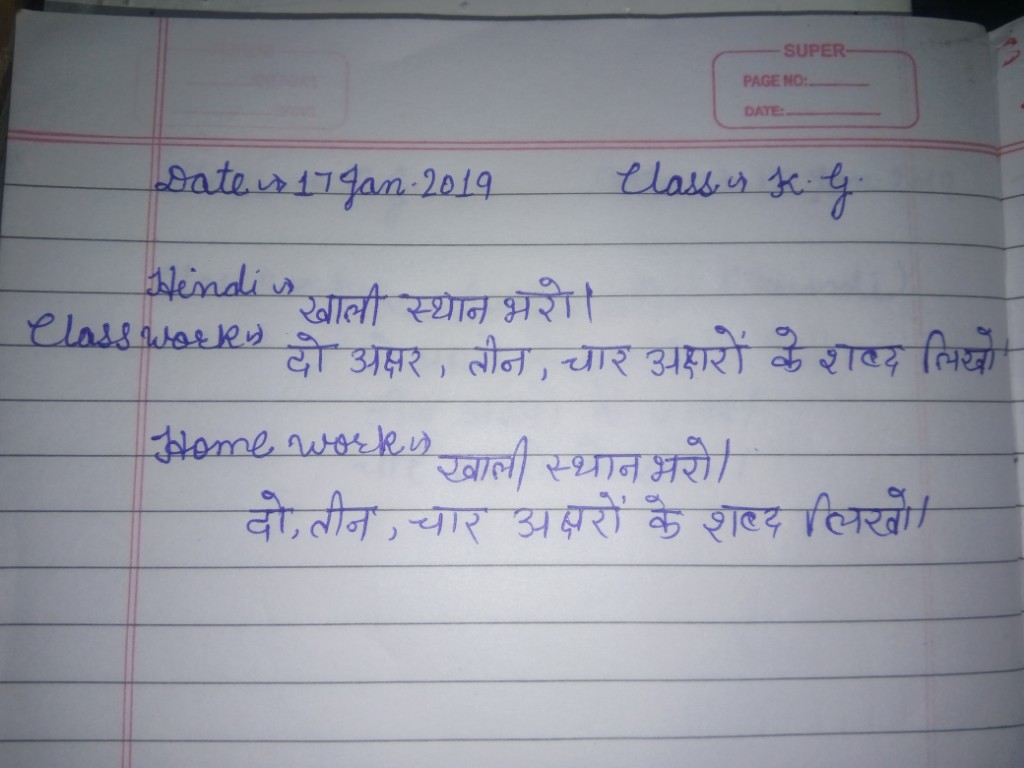 SUPER
PAGE NO:
DATE:
Date 17 Jan. 2019 Class K. G.
Hindi खाली स्थान भरो।
Class work दो अक्षर, तीन, चार अक्षरों के शब्द लिखो
Home work खाली स्थान भरो।
दो, तीन, चार अक्षरों के शब्द लिखो।